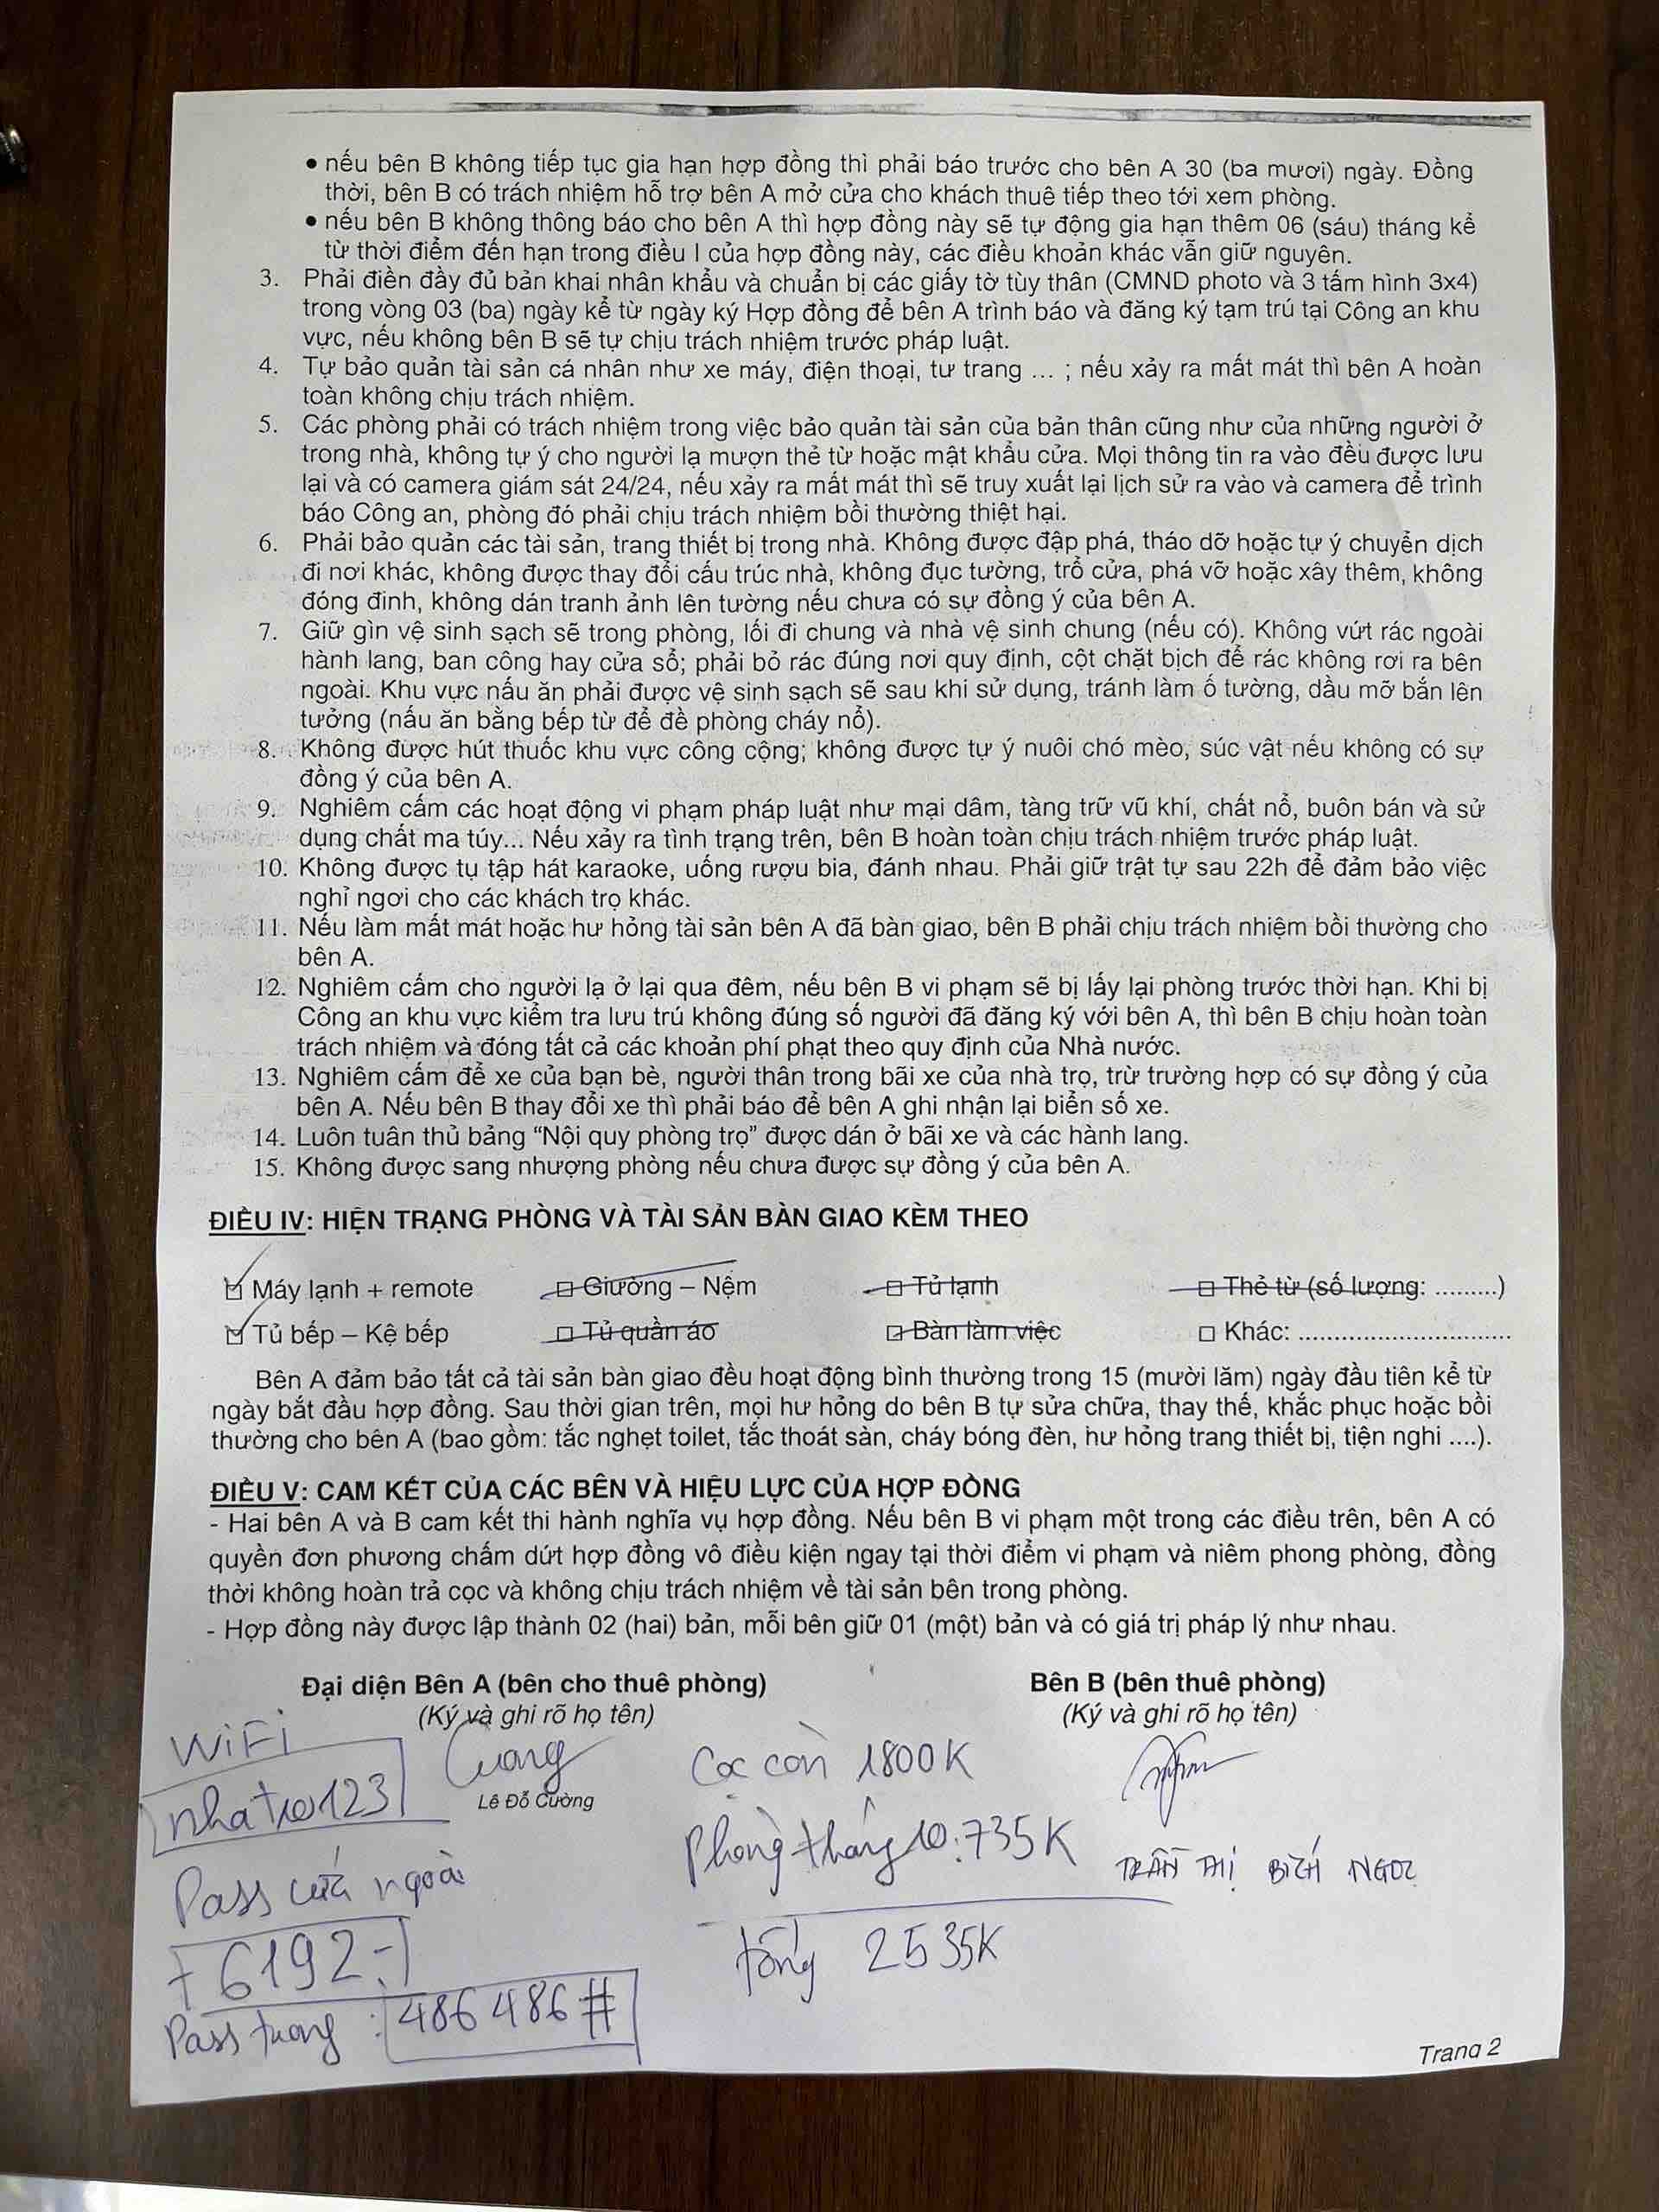 • nếu bên B không tiếp tục gia hạn hợp đồng thì phải báo trước cho bên A 30 (ba mươi) ngày. Đồng
thời, bên B có trách nhiệm hỗ trợ bên A mở cửa cho khách thuê tiếp theo tới xem phòng.
• nếu bên B không thông báo cho bên A thì hợp đồng này sẽ tự động gia hạn thêm 06 (sáu) tháng kể
từ thời điểm đến hạn trong điều I của hợp đồng này, các điều khoản khác vẫn giữ nguyên.
3. Phải điền đầy đủ bản khai nhân khẩu và chuẩn bị các giấy tờ tùy thân (CMND photo và 3 tấm hình 3x4)
trong vòng 03 (ba) ngày kể từ ngày ký Hợp đồng để bên A trình báo và đăng ký tạm trú tại Công an khu
vực, nếu không bên B sẽ tự chịu trách nhiệm trước pháp luật.
4. Tự bảo quản tài sản cá nhân như xe máy, điện thoại, tư trang ... ; nếu xảy ra mất mát thì bên A hoàn
toàn không chịu trách nhiệm.
5. Các phòng phải có trách nhiệm trong việc bảo quản tài sản của bản thân cũng như của những người ở
trong nhà, không tự ý cho người lạ mượn thẻ từ hoặc mật khẩu cửa. Mọi thông tin ra vào đều được lưu
lại và có camera giám sát 24/24, nếu xảy ra mất mát thì sẽ truy xuất lại lịch sử ra vào và camera để trình
báo Công an, phòng đó phải chịu trách nhiệm bồi thường thiệt hại.
6. Phải bảo quản các tài sản, trang thiết bị trong nhà. Không được đập phá, tháo dỡ hoặc tự ý chuyển dịch
đi nơi khác, không được thay đổi cấu trúc nhà, không đục tường, trổ cửa, phá vỡ hoặc xây thêm, không
đóng đinh, không dán tranh ảnh lên tường nếu chưa có sự đồng ý của bên A.
7. Giữ gìn vệ sinh sạch sẽ trong phòng, lối đi chung và nhà vệ sinh chung (nếu có). Không vứt rác ngoài
hành lang, ban công hay cửa sổ; phải bỏ rác đúng nơi quy định, cột chặt bịch để rác không rơi ra bên
ngoài. Khu vực nấu ăn phải được vệ sinh sạch sẽ sau khi sử dụng, tránh làm ố tường, dầu mỡ bắn lên
tưởng (nấu ăn bằng bếp từ để đề phòng cháy nổ).
8. Không được hút thuốc khu vực công cộng; không được tự ý nuôi chó mèo, súc vật nếu không có sự
đồng ý của bên A.
9. Nghiêm cấm các hoạt động vi phạm pháp luật như mại dâm, tàng trữ vũ khí, chất nổ, buôn bán và sử
dụng chất ma túy... Nếu xảy ra tình trạng trên, bên B hoàn toàn chịu trách nhiệm trước pháp luật.
10. Không được tụ tập hát karaoke, uống rượu bia, đánh nhau. Phải giữ trật tự sau 22h để đảm bảo việc
nghỉ ngơi cho các khách trọ khác.
11. Nếu làm mất mát hoặc hư hỏng tài sản bên A đã bàn giao, bên B phải chịu trách nhiệm bồi thường cho
bên A.
12. Nghiêm cấm cho người lạ ở lại qua đêm, nếu bên B vi phạm sẽ bị lấy lại phòng trước thời hạn. Khi bị
Công an khu vực kiểm tra lưu trú không đúng số người đã đăng ký với bên A, thì bên B chịu hoàn toàn
trách nhiệm và đóng tất cả các khoản phí phạt theo quy định của Nhà nước.
13. Nghiêm cấm để xe của bạn bè, người thân trong bãi xe của nhà trọ, trừ trường hợp có sự đồng ý của
bên A. Nếu bên B thay đổi xe thì phải báo để bên A ghi nhận lại biển số xe.
14. Luôn tuân thủ bảng “Nội quy phòng trọ” được dán ở bãi xe và các hành lang.
15. Không được sang nhượng phòng nếu chưa được sự đồng ý của bên A.
ĐIỀU IV: HIỆN TRẠNG PHÒNG VÀ TÀI SẢN BÀN GIAO KÈM THEO
☑ Máy lạnh + remote □ Giường – Nệm □ Tủ lạnh □ Thẻ từ (số lượng: .........)
☑ Tủ bếp – Kệ bếp □ Tủ quần áo □ Bàn làm việc □ Khác: ..............................
Bên A đảm bảo tất cả tài sản bàn giao đều hoạt động bình thường trong 15 (mười lăm) ngày đầu tiên kể từ
ngày bắt đầu hợp đồng. Sau thời gian trên, mọi hư hỏng do bên B tự sửa chữa, thay thế, khắc phục hoặc bồi
thường cho bên A (bao gồm: tắc nghẹt toilet, tắc thoát sàn, cháy bóng đèn, hư hỏng trang thiết bị, tiện nghi ....).
ĐIỀU V: CAM KẾT CỦA CÁC BÊN VÀ HIỆU LỰC CỦA HỢP ĐỒNG
- Hai bên A và B cam kết thi hành nghĩa vụ hợp đồng. Nếu bên B vi phạm một trong các điều trên, bên A có
quyền đơn phương chấm dứt hợp đồng vô điều kiện ngay tại thời điểm vi phạm và niêm phong phòng, đồng
thời không hoàn trả cọc và không chịu trách nhiệm về tài sản bên trong phòng.
- Hợp đồng này được lập thành 02 (hai) bản, mỗi bên giữ 01 (một) bản và có giá trị pháp lý như nhau.
Đại diện Bên A (bên cho thuê phòng) Bên B (bên thuê phòng)
(Ký và ghi rõ họ tên) (Ký và ghi rõ họ tên)
WiFi
nhatro123
Cuong
Lê Đỗ Cường
Pass cửa ngoài
6192
Pass trong : 486486#
Cọc còn 1800K
Phòng tháng 10: 735K
tổng 2535K
TRẦN THỊ BÍCH NGỌC
Trang 2